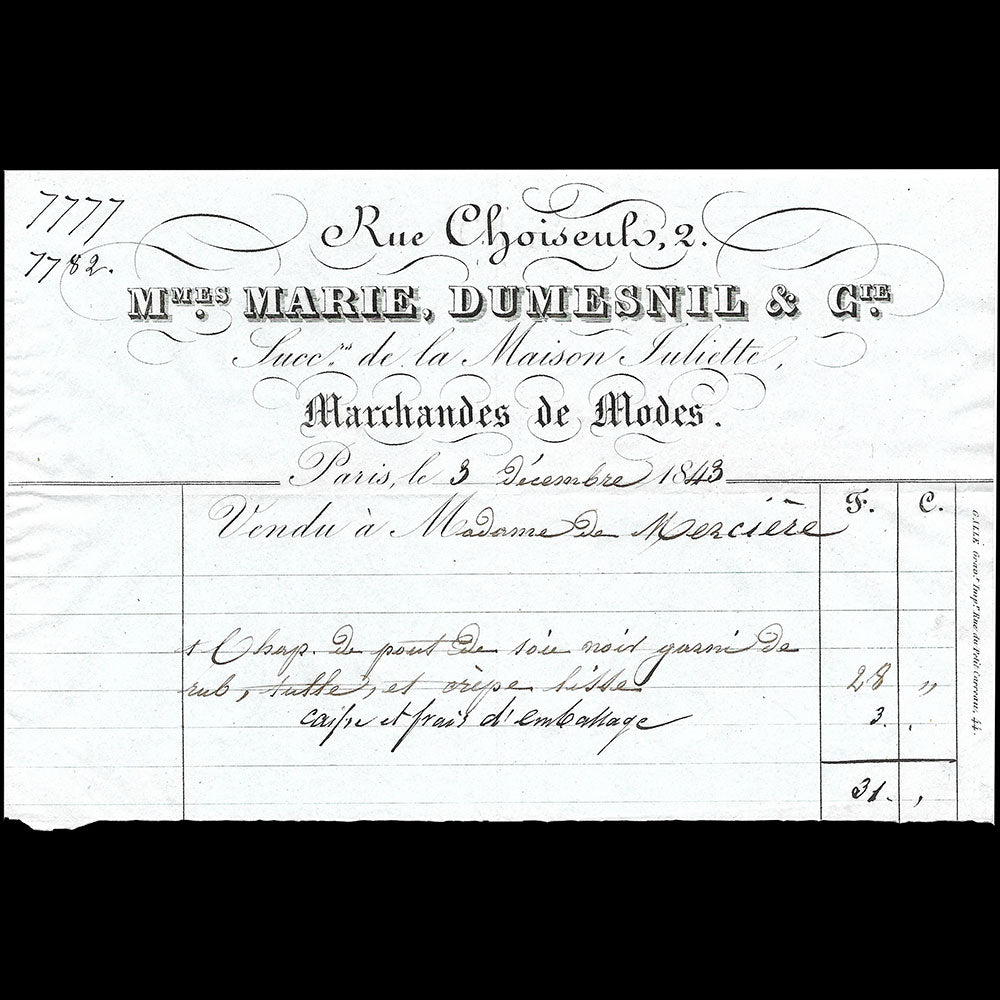 7777
7782.
Rue Choiseul, 2.
MMES. MARIE, DUMESNIL & CIE.
Succ.rs de la Maison Juliette,
Marchandes de Modes.
Paris, le 3 Décembre 1843
F. C.
Vendu à Madame de Mercière
1 Chap. de pout de soie noir garni de
rub, tulle, et crèpe lisse 28 "
caisse et frais d'emballage 3. .
31. ,
GALLE Grav.r Imp.r Rue du Petit Carreau, 44.